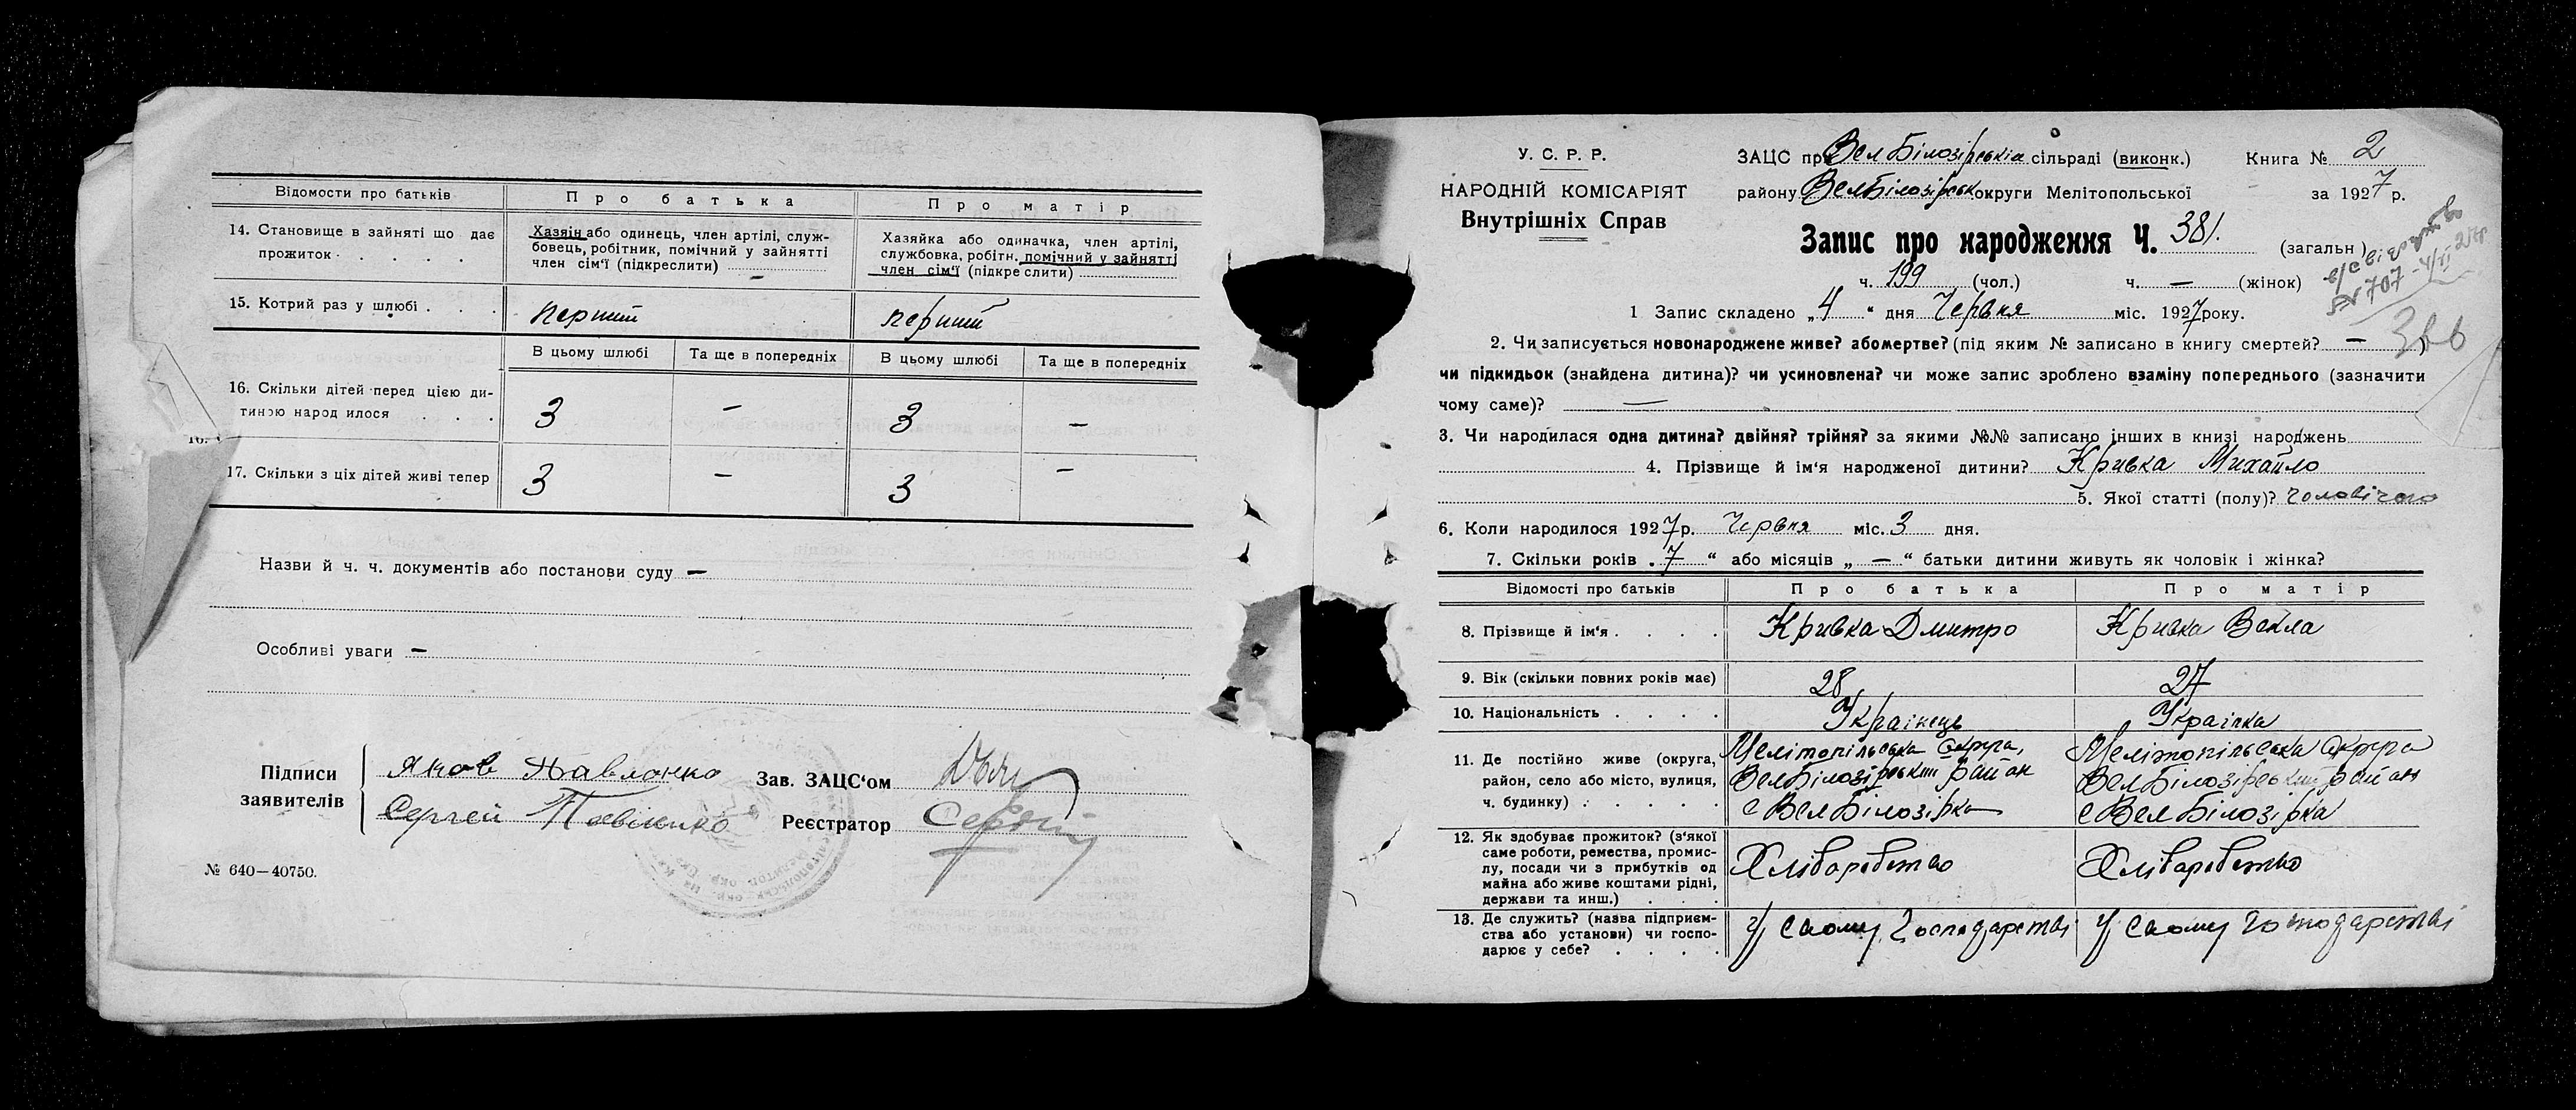 Відомости про батьків
Про батька
Про матір
14. Становище в зайняті що дає прожиток
Хазяін або одинець, член артілі, служ-
бовець, робітник, помічний у зайнятті
член сім'ї (підкреслити) —
Хазяйка або одиначка, член артілі,
службовка, робітн. помічний у зайнятті
член сім'ї (підкре слити)
15. Котрий раз у шлюбі
перший
перший
В цьому шлюбі
Та ще в попередніх
В цьому шлюбі
Та ще в попередніх
16. Скільки дітей перед цією ди-
тиною народ илося
3 — 3 —
17. Скільки з ціх дітей живі тепер
3 — 3 —
Назви й ч. ч. документів або постанови суду —
Особливі уваги —
Підписи заявителів
Яков Павленко
Сергей Павленко
Зав. ЗАЦС'ом
Реєстратор
№ 640—40750.
У. С. Р. Р.
НАРОДНІЙ КОМІСАРІЯТ
Внутрішніх Справ
ЗАЦС при Вел Білозірській сільраді (виконк.) Книга № 2
району ВелБілозірськ округи Мелітопольської за 1927 р.
Запис про народження Ч. 381. (загальн)
ч. 199 (чол.) ч. — (жінок)
№ 707
1 Запис складено „4“ дня Червня міс. 1927 року.
2. Чи записується новонароджене живе? абомертве? (під яким № записано в книгу смертей? —)
чи підкидьок (знайдена дитина)? чи усиновлена? чи може запис зроблено взаміну попереднього (зазначити
чому саме)? —
3. Чи народилася одна дитина? двійня? трійня? за якими №№ записано інших в книзі народжень
4. Прізвище й ім'я народженої дитини? Кривка Михайло
5. Якої статті (полу)? чоловічого
6. Коли народилося 1927 р. Червня міс. 3 дня.
7. Скільки років „7“ або місяців „—“ батьки дитини живуть як чоловік і жінка?
Відомості про батьків
Про батька
Про матір
8. Прізвище й ім'я
Кривка Дмитро
Кривка Векла
9. Вік (скільки повних років має)
28
27
10. Національність
Українець
Українка
11. Де постійно живе (округа,
район, село або місто, вулиця,
ч. будинку)
Мелітопільська Округа,
ВелБілозірський район
с ВелБілозірка
Мелітопільська Округа
ВелБілозірський район
с ВелБілозірка
12. Як здобуває прожиток? (з'якої
саме роботи, ремества, промис-
лу, посади чи з прибутків од
майна або живе коштами рідні,
держави та инш.)
Хліборобство
Хліборобство
13. Де служить? (назва підприєм-
ства або установи) чи госпо-
дарює у себе?
У свому господарстві
У свому господарстві